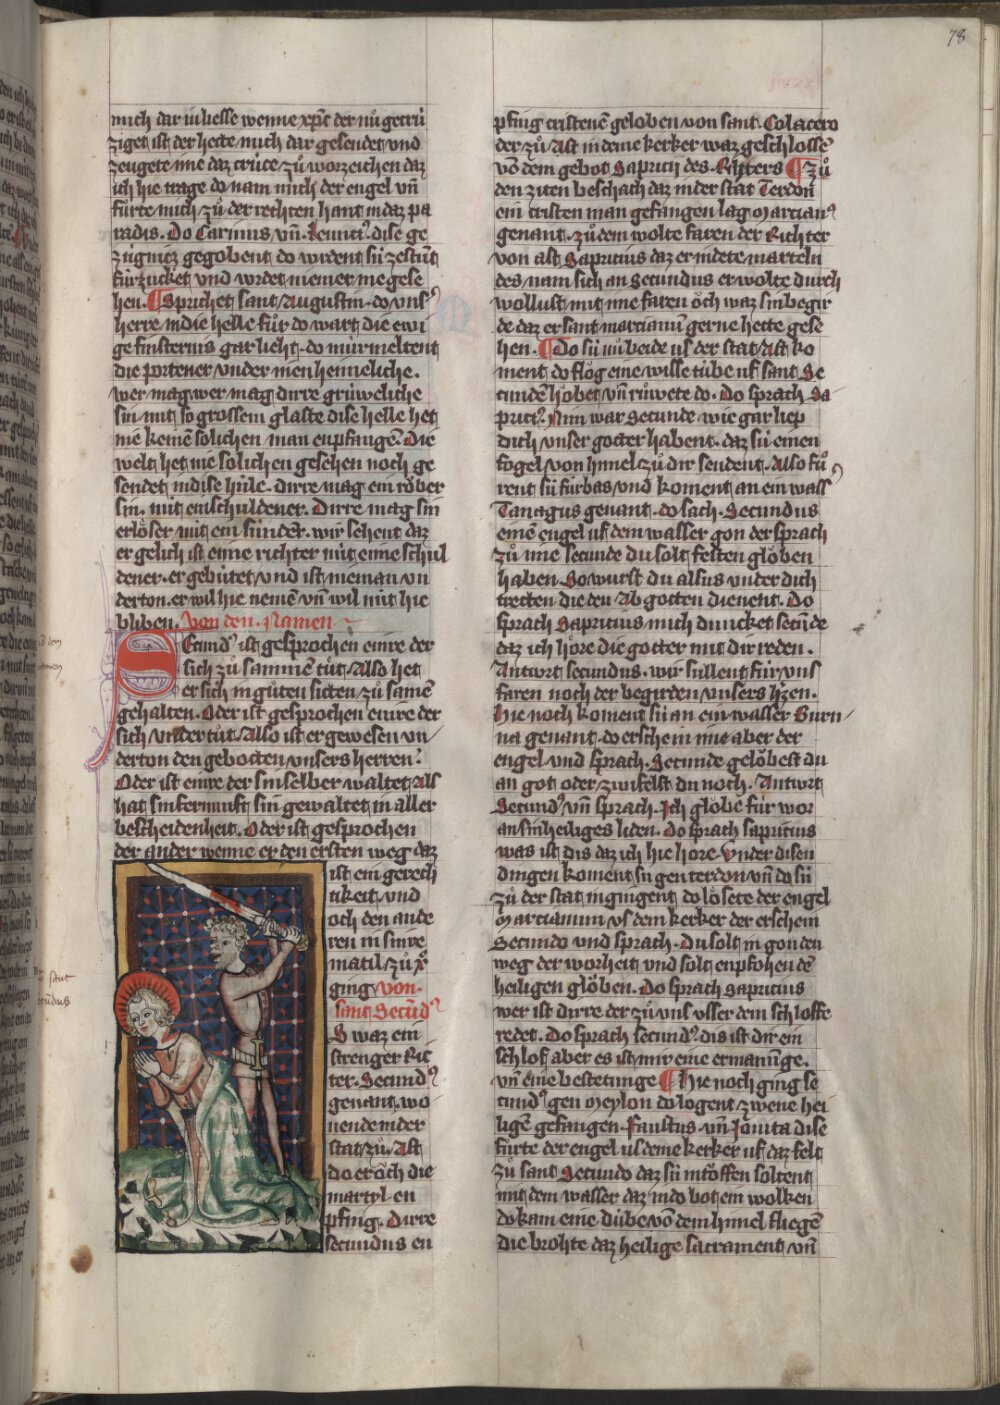 78
mich dar in besse wenne xp̄c der nu getrü
ziget ist der hette mich dar gesendet vnd
zeugete mie daz crüce zů worzeichen daz
ich hie trage do nam mich der engel vn̄
fůrte mich zů der rechten hant in daz pa
radis. Do Carinus vn̄. leunci⁹. dise ge
zügnież gegobent do wrdent sü zestunt
fürzücket vnd wrdet niemer me gese
hen. ¶ Sprichet sant Augustin. do vnsʼ
herre in die helle fůr do wart die ewi
ge finsternis gar lieht. do mürmeltent
die portener vnder inen heimeliche.
wer mag wer mag dirre grüweliche
sin mit so grossem glaste dise helle het
nie keinē solichen man enpfangē. Die
welt het nie solichen gesehen noch ge
sendet in dise hüle. dirre mag ein röber
sin. nüt ein schuldener. Dirre mag sin
erlöser nüt ein sünder. wir sehent daz
er gelich ist eime richter nüt eime schul
dener. er gebütet vnd ist nieman vn
derton. er wil hie nemē vn̄ wil nüt hie
bliben. von den. Namen
Secund⁹ ist gesprochen einre der
sich zů sammē tůt. Also het
er sich in gůten sitten zů samē
gehalten. Oder ist gesprochen einre der
sich vnder tůt. Also ist er gewesen vn
derton den gebotten vnsers herren.
Oder ist einre der sin selber waltet als
hat sin fernunft sin gewaltet in aller
bescheidenheit. Oder ist gesprochen
der ander wenne er den ersten weg daz
ist ein gerech
tikeit vnd
och den ande
ren in sinre
matil zů xo̅
ging von.
sant Secūd⁹
S waz ein
strenger Rit
ter. Secund⁹
genant. wo
nende in der
stat zů. Ast
do er öch die
martyl en
pfing. Dirre
secundus en
pfing cristenē geloben von sant. Colacero
der zů Ast in deme kerker waz geschlossē
vō dem gebot Sapricij des. Rihters ¶ Zů
den ziten beschach daz in der stat Terdon
ein cristen man gefangen lag Marcian⁹
genant. zů dem wolte faren der Richter
von ast Sapricius daz er in dete marteln
des nam sich an Secundus er wolte durch
wollust mit ime faren öch waz sin begir
de daz er sant marcianū gerne hette gese
hen. ¶ Do sü nu beide us der stat Ast ko
ment do flög eine wisse tübe uf sant Se
cundē höbet vn̄ růwete do. Do sprach Sa
prici⁹. Nim war Secunde wie gar liep
dich vnser gotter habent. daz sü einen
fogel von himel zů dir sendent. Also fů
rent sü fürbas vnd koment an ein wassʼ
Tanagus genant. do sach. Secundus
einē engel uf dem wasser gon der sprach
zů ime secunde du solt festen glöben
haben. So wurst du alsus vnder dich
tretten die den Abgotten dienent. Do
sprach Sapricius mich duncket secūde
daz ich höre die gotter mit dir reden.
Antwrt secundus. wir süllent für vns
faren noch der begirden vnsers hʼzen.
Hie noch koment sü an ein wasser Burn
na genant. do erschein ime aber der
engel vnd sprach. Secunde gelöbest du
an got oder zwifelst du noch. Antwrt
Secund⁹ vn̄ sprach. Ich glöbe für wor
an sin heiliges liden. Do sprach sapricius
was ist dis daz ich hie hore. Vnder disen
dingen koment sü gen terdon vn̄ do sü
zů der stat in gingent. do lösete der engel
Marcianum vs dem kerker der erschein
Secundo vnd sprach. Du solt in gon den
weg der worheit vnd solt enpfohen dē
heiligen glöben. Do sprach Sapricius
wer ist dirre der zů uns vsser dem schlosse
redet. Do sprach secund⁹. dis ist dir ein
schlof aber es ist mir eine ermanūge.
vn̄ eine bestetunge ¶ Hie noch ging se
cund⁹ gen Meylon do logent zwene hei
ligē gefangen. Faustus. vn̄ Jouita dise
fürte der engel us deme kerker uf daz felt
zů sant Secundo daz sü in töffen soltent
mit dem wasser daz in do bot ein wolken
do kam eine dübe vō dem himel fliegē
die brohte daz heilige sacrament vn̄